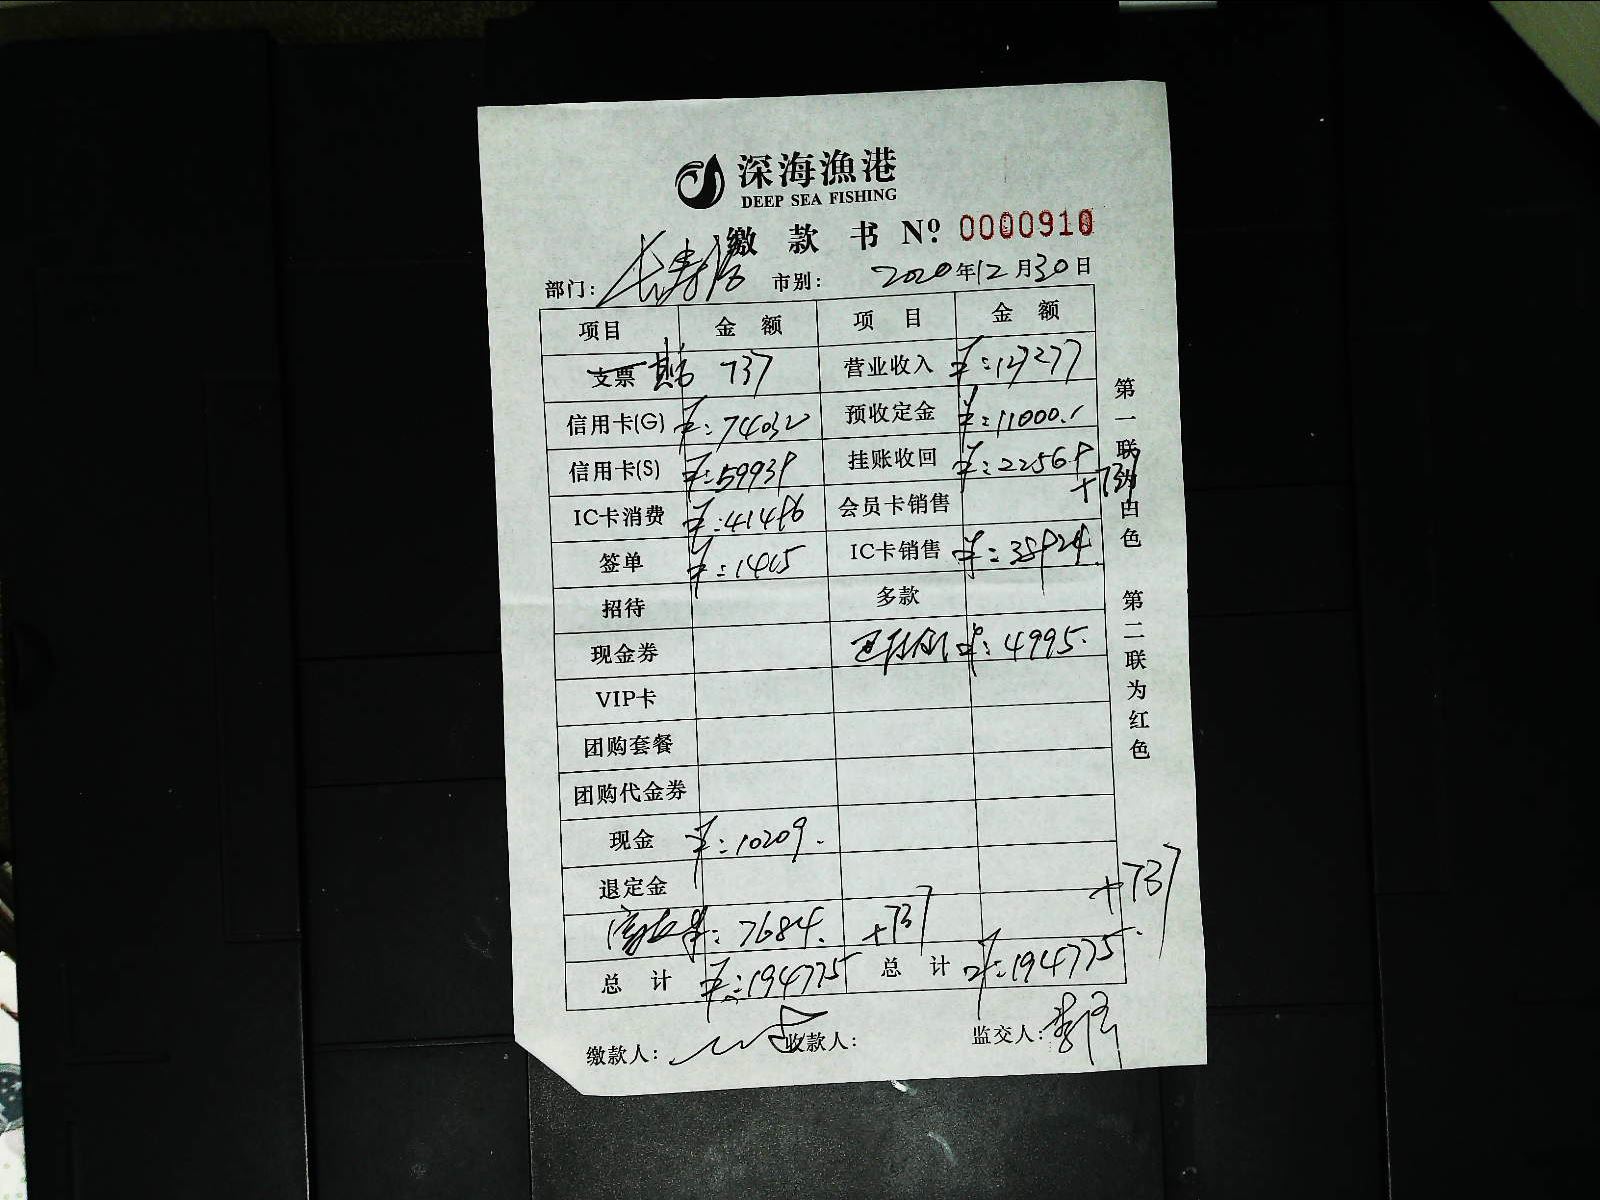 深海漁港
DEEP SEA FISHING
缴款书 Nº: 0000910
部门: 长寿路 市别: 2020年12月30日
项目 金额 项目 金额
支票 737 营业收入
信用卡(G) ¥:74032 预收定金 ¥:11000.
信用卡(S) ¥:59939 挂账收回 ¥:22568
+737
IC卡消费 ¥:41486 会员卡销售
签单 IC卡销售 ¥:38924.
招待 多款
现金券 ¥:4995.
VIP卡
团购套餐
团购代金券
现金 ¥:10209.
退定金
+737
¥:7684. +737
总计 ¥:194775 总计 ¥:194775.
缴款人: 收款人: 监交人:
第一联为白色 第二联为红色